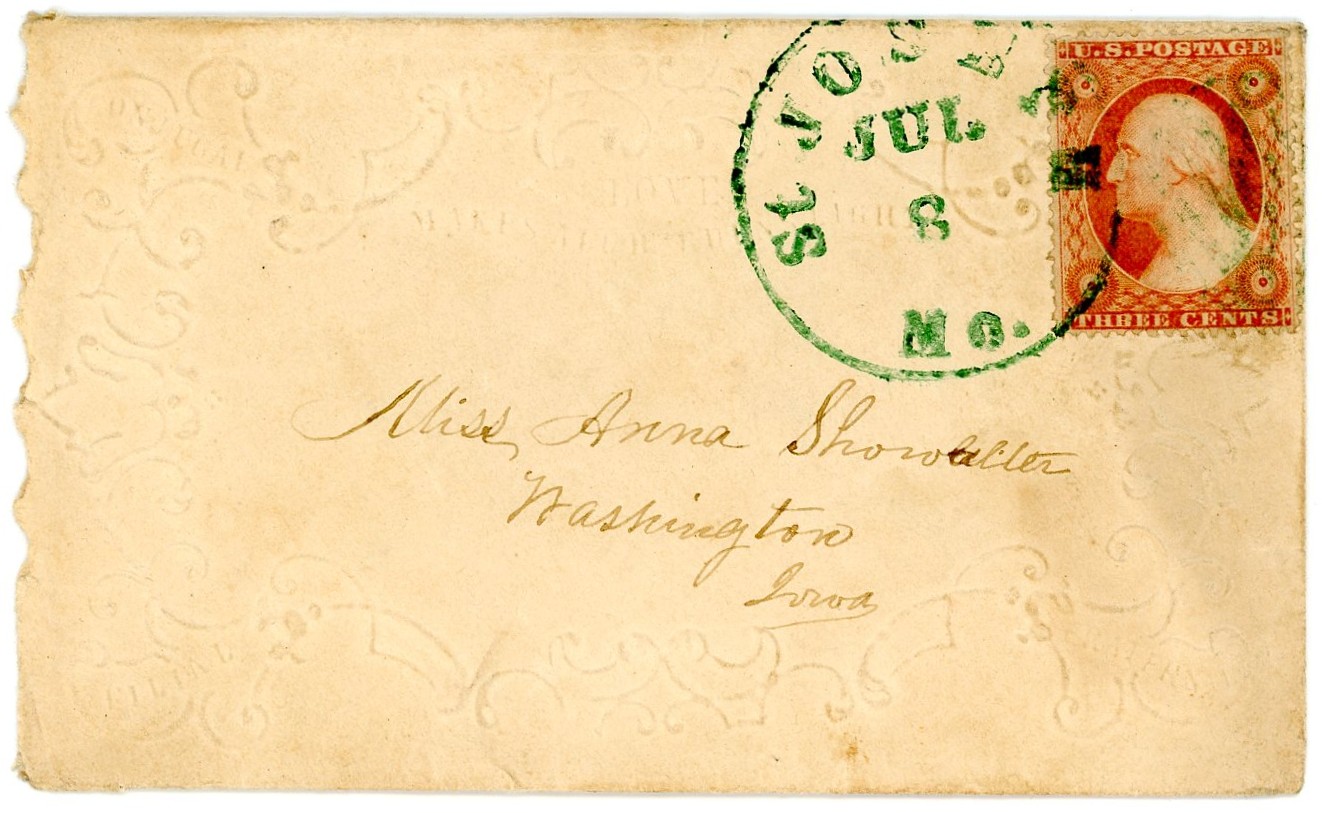 St JOS
JUL
8
Mo.
U.S. POSTAGE
THREE CENTS
Miss Anna Showalter
Washington
Iowa